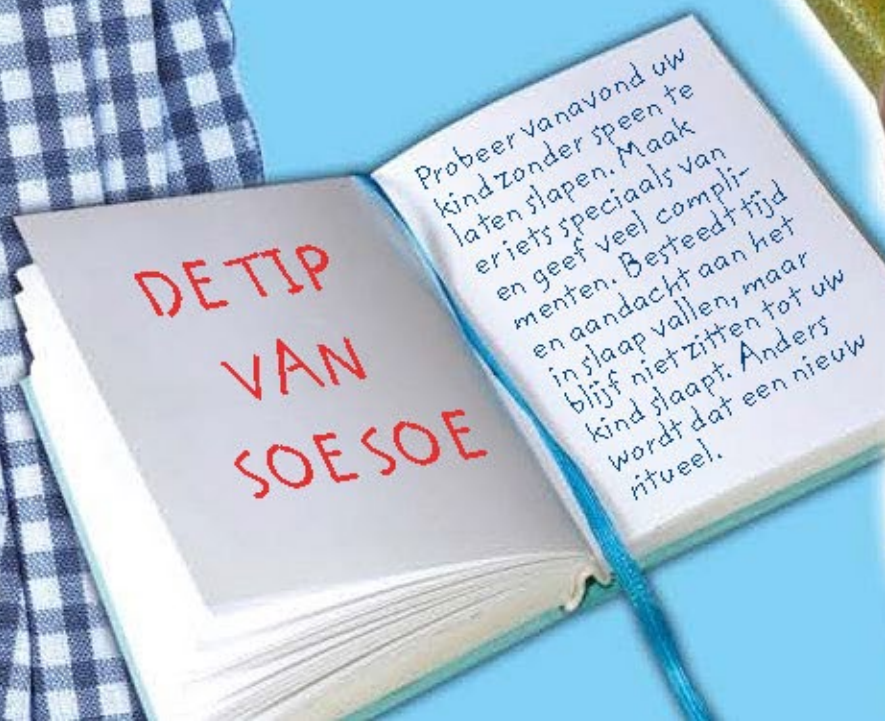 DE TIP
VAN
SOESOE
Probeer vanavond uw
kind zonder speen te
laten slapen. Maak
er iets speciaals van
en geef veel compli-
menten. Besteedt tijd
en aandacht aan het
in slaap vallen, maar
blijf niet zitten tot uw
kind slaapt. Anders
wordt dat een nieuw
ritueel.